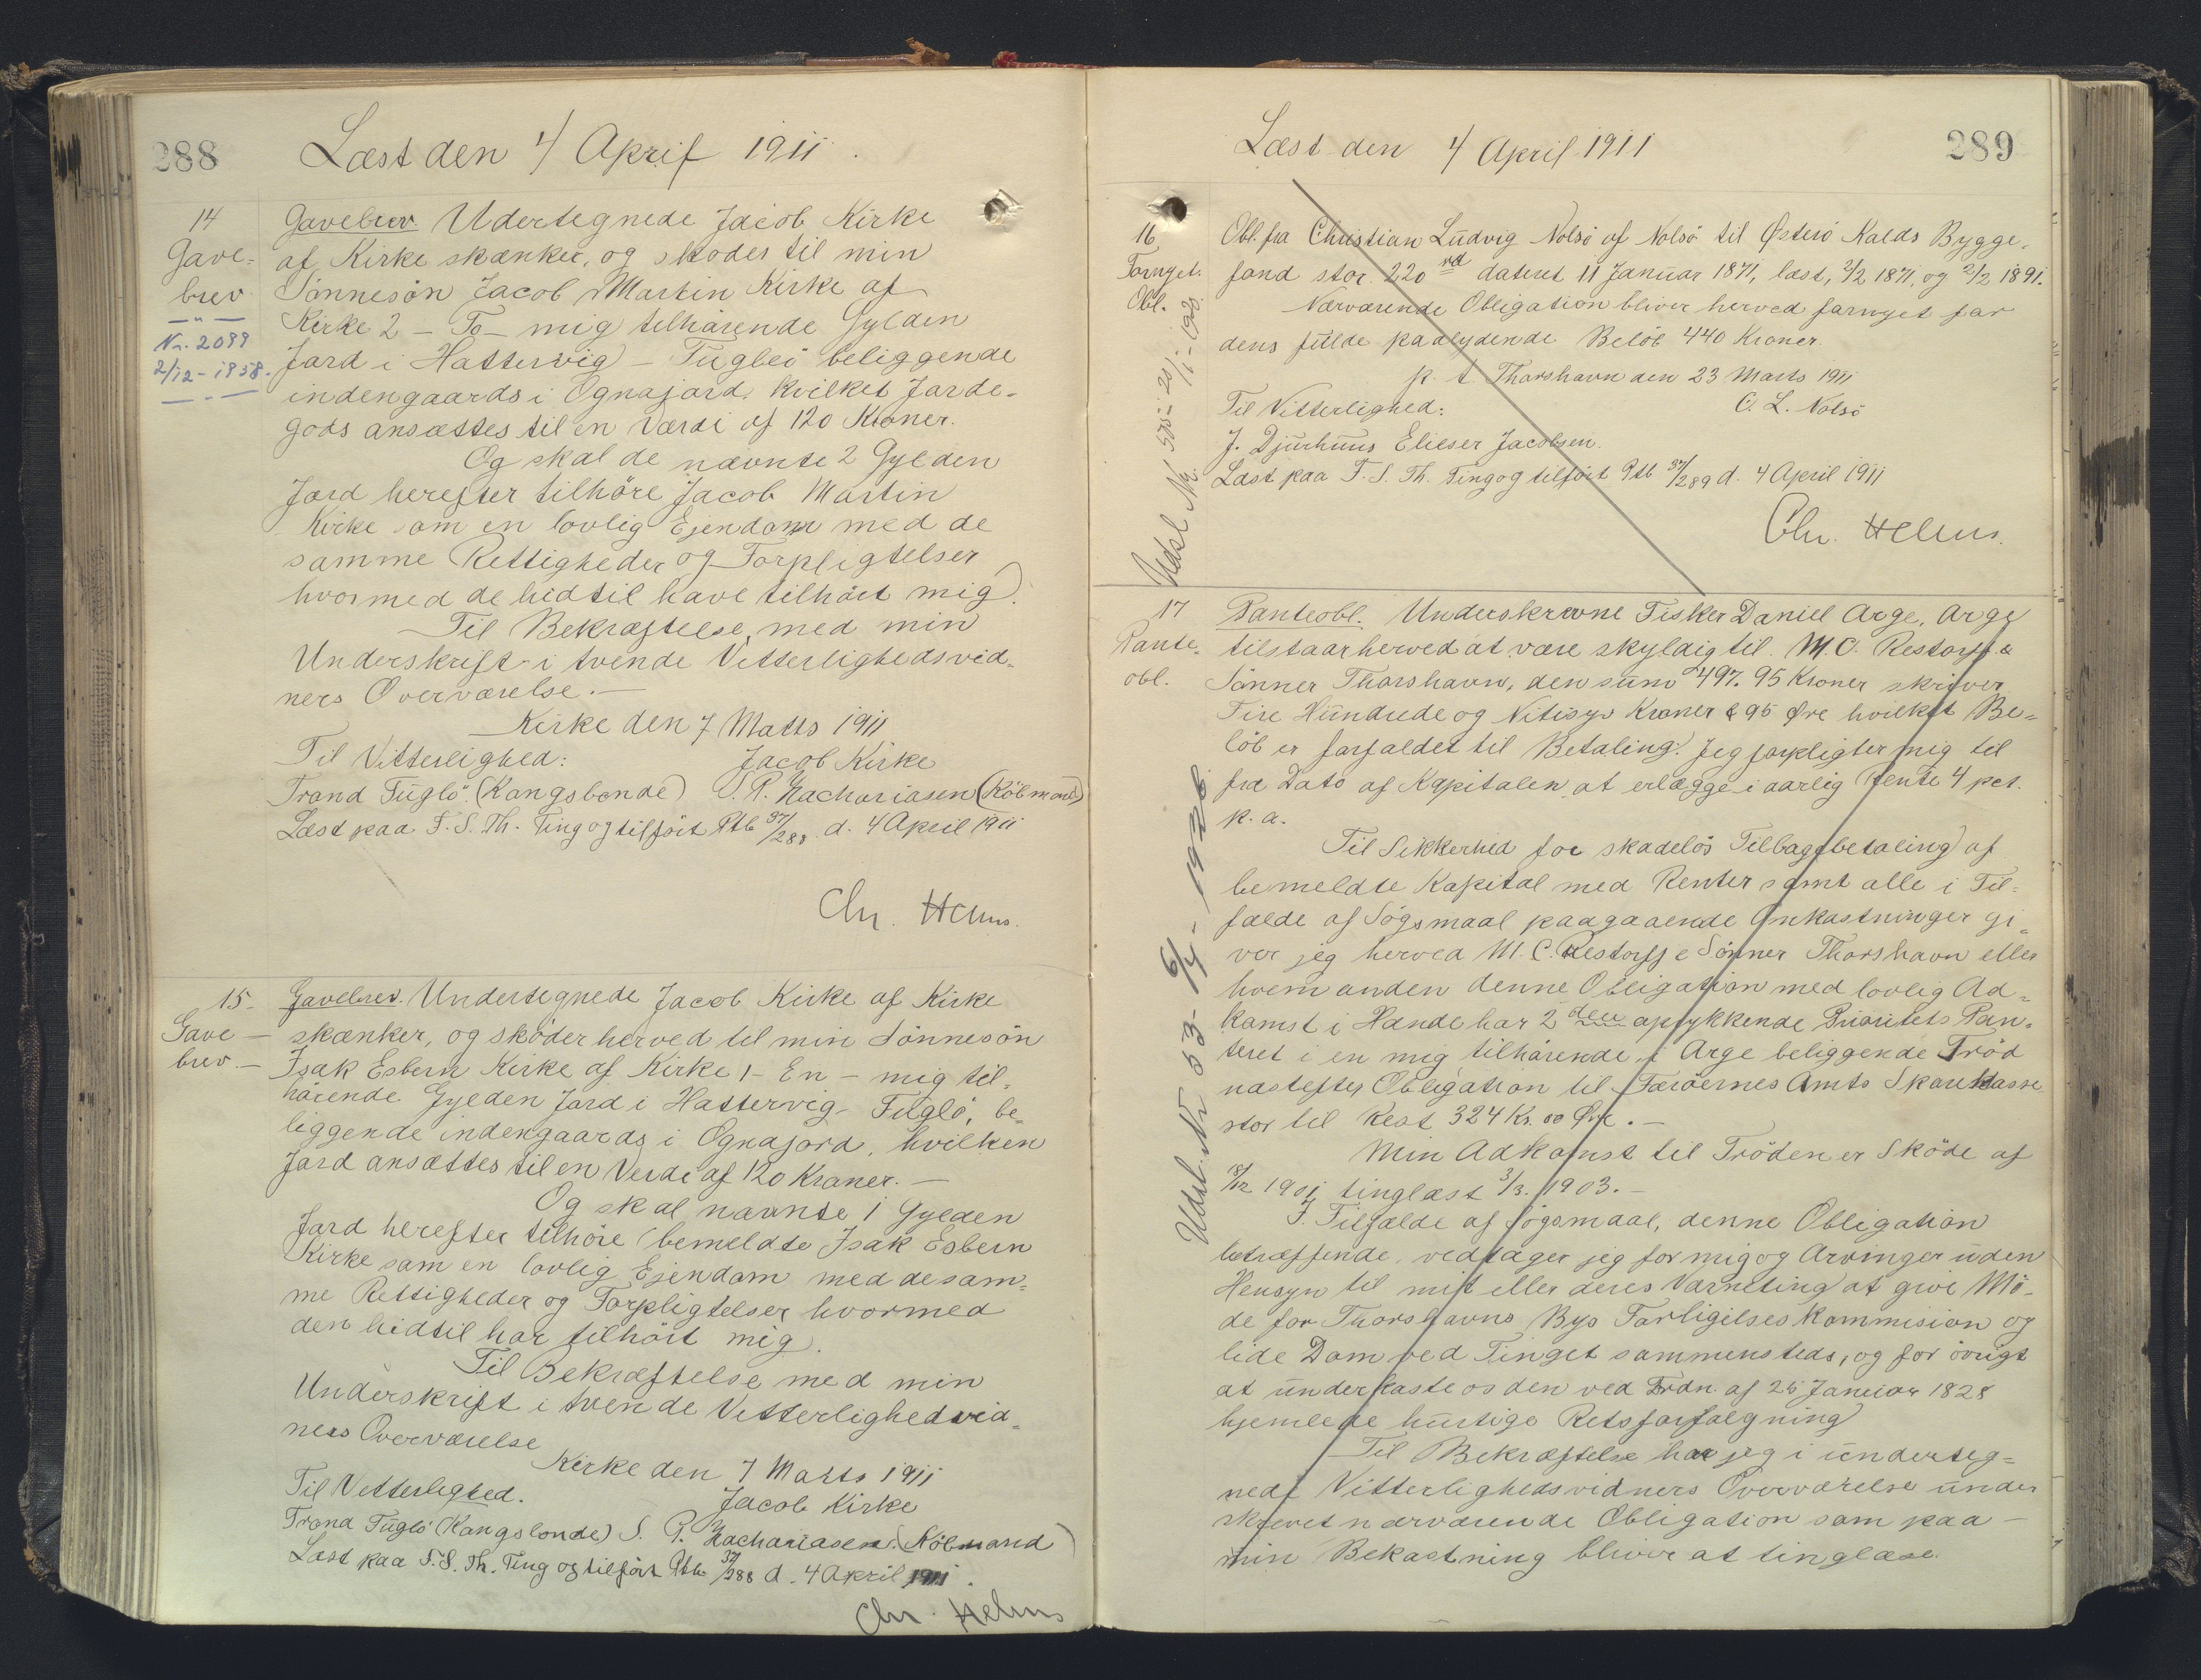 288
Læst den 4/ April 1911.
14
Gave-
brev
Nr. 2099
2/12-1958.
Gavebrev. Udertegnede Jacob Kirke
af Kirke skænker, og skøder til min
Sønnesøn Jacob Martin Kirke af
Kirke 2 - To - mig tilhørende Gylden
Jord i Hattervig - Fuglø beliggende
indengaards i Ognajord, hvilket Jorde-
gods ansættes til en Værdi af 120 Kroner.
Og skal de nævnte 2 Gylden
Jord herefter tilhöre Jacob Martin
Kirke som en lovlig Ejendom med de
samme Rettigheder og Forpligtelser
hvormed de hidtil have tilhört mig.
Til Bekræftelse med min
Underskrift i tvende Vitterlighedsvid-
ners Overværelse.-
Kirke den 7 Marts 1911
Til Vitterlighed: Jacob Kirke
Trond Fuglö (Kongsbonde) S. P. Zachariasen (Købmand)
Læst paa F. S. Th. Ting og tilföit Ptb 37/288 d. 4 April 1911
Chr. Helms.
15-
Gave-
brev-
Gavebrev. Undertegnede Jacob Kirke af Kirke
skænker, og sköder herved til min Sönnesön
Isak Esbern Kirke af Kirke 1 - En - mig til-
hörende Gylden Jord i Hattervig - Fuglö, be-
liggende indengaards i Ognajord, hvilken
Jord ansættes til en Verdi af 120 Kroner.-
Og skal nævnte 1 Gylden
Jord herefter tilhöre bemeldte Isak Esbern
Kirke som en lovlig Ejendom med de sam-
me Rettigheder og Forpligtelser hvormed
den hidtil har tilhört mig.
Til Bekræftelse med min
Underskrift i tvende Vitterlighedsvid-
ners Overværelse
Kirke den 7 Marts 1911
Til Vitterlighed. Jacob Kirke
Trond Fuglö (Kongsbonde) S. P. Zachariasen. (Köbmand)
Læst paa F. S. Th. Ting og tilfört Ptb. 37/288 d. 4 April 1911.
Chr. Helms
289
Læst den 4/ April 1911
16,
Fornyet.
Obl.
Udsl Nr.
Obl. fra Christian Ludvig Nolsö af Nolsö til Østerö Kalds Bygge-
fond stor 220 rd dateret 11 Januar 1871, læst, 2/2 1871, og 2/2 1891.
Nærværende Obligation bliver herved fornyet for
dens fulde paalydende Belöb 440 Kroner.
p. t. Thorshavn den 23 Marts 1911
Til Vitterlighed: C. L. Nolsö
J. Djurhuus Elieser Jacobsen.
Læst paa F. S. Th. Ting og tilföit Ptb 37/289 d. 4 April 1911
Chr. Helms.
17
Pante-
obl.
Udsl. Nr 53- 6/4- 1926
Panteobl. Underskrevne Fisker Daniel Arge, Arge
tilstaar herved at være skyldig til M. C. Restorff &
Sönner Thorshavn, den sum 497. 95 Kroner skriver
Fire Hundrede og Nitisyv Kroner & 95 Øre hvilket Be-
löb er forfaldet til Betaling. Jeg forpligter mig til
fra Dato af Kapitalen at erlægge i aarlig Rente 4 pct.
p. a.
Til Sikkerhed for skadelös Tilbagebetaling af
bemeldte Kapital med Renter samt alle i Til-
fælde af Sögsmaal paagaaende Omkostninger gi-
ver jeg herved M. C. Restorff & Sönner Thorshavn eller
hvem anden denne Obligation med lovlig Ad-
komst i Hænde har 2 den oprykkende Prioritets Pan-
teret i en mig tilhörende, i Arge beliggende Tröd
næstefter Obligation til Færöernes Amts Sparekasse
stor til Rest 324 Kr. 00 Øre.-
Min Adkomst til Tröden er Sköde af
18/12 1901 tinglæst 3/3. 1903.-
I. Tilfælde af Sögsmaal, denne Obligation
betræffende, vedtager jeg for mig og Arvinger uden
Hensyn til mit eller deres Værneting at give Mö-
de for Thorshavns Bys Forligilses kommision og
lide Dom ved Tinget sammensteds, og for övrigt
at underkaste os den ved Frdn. af 25 Januar 1828
hjemlede hurtige Retsforfølgning
Til Bekræftelse har jeg i underteg-
nede Vitterlighedsvidners Overværelse under
skrevet nærværende Obligation som paa-
min Bekostning bliver at tinglæse.